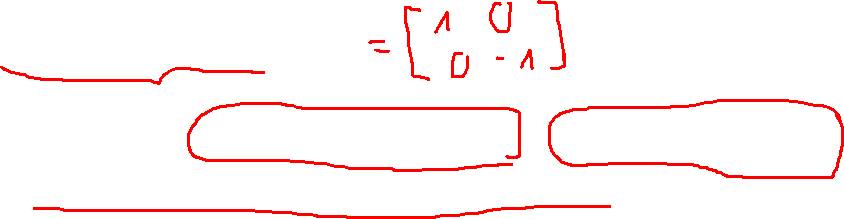 = [ 1 0
0 -1 ]